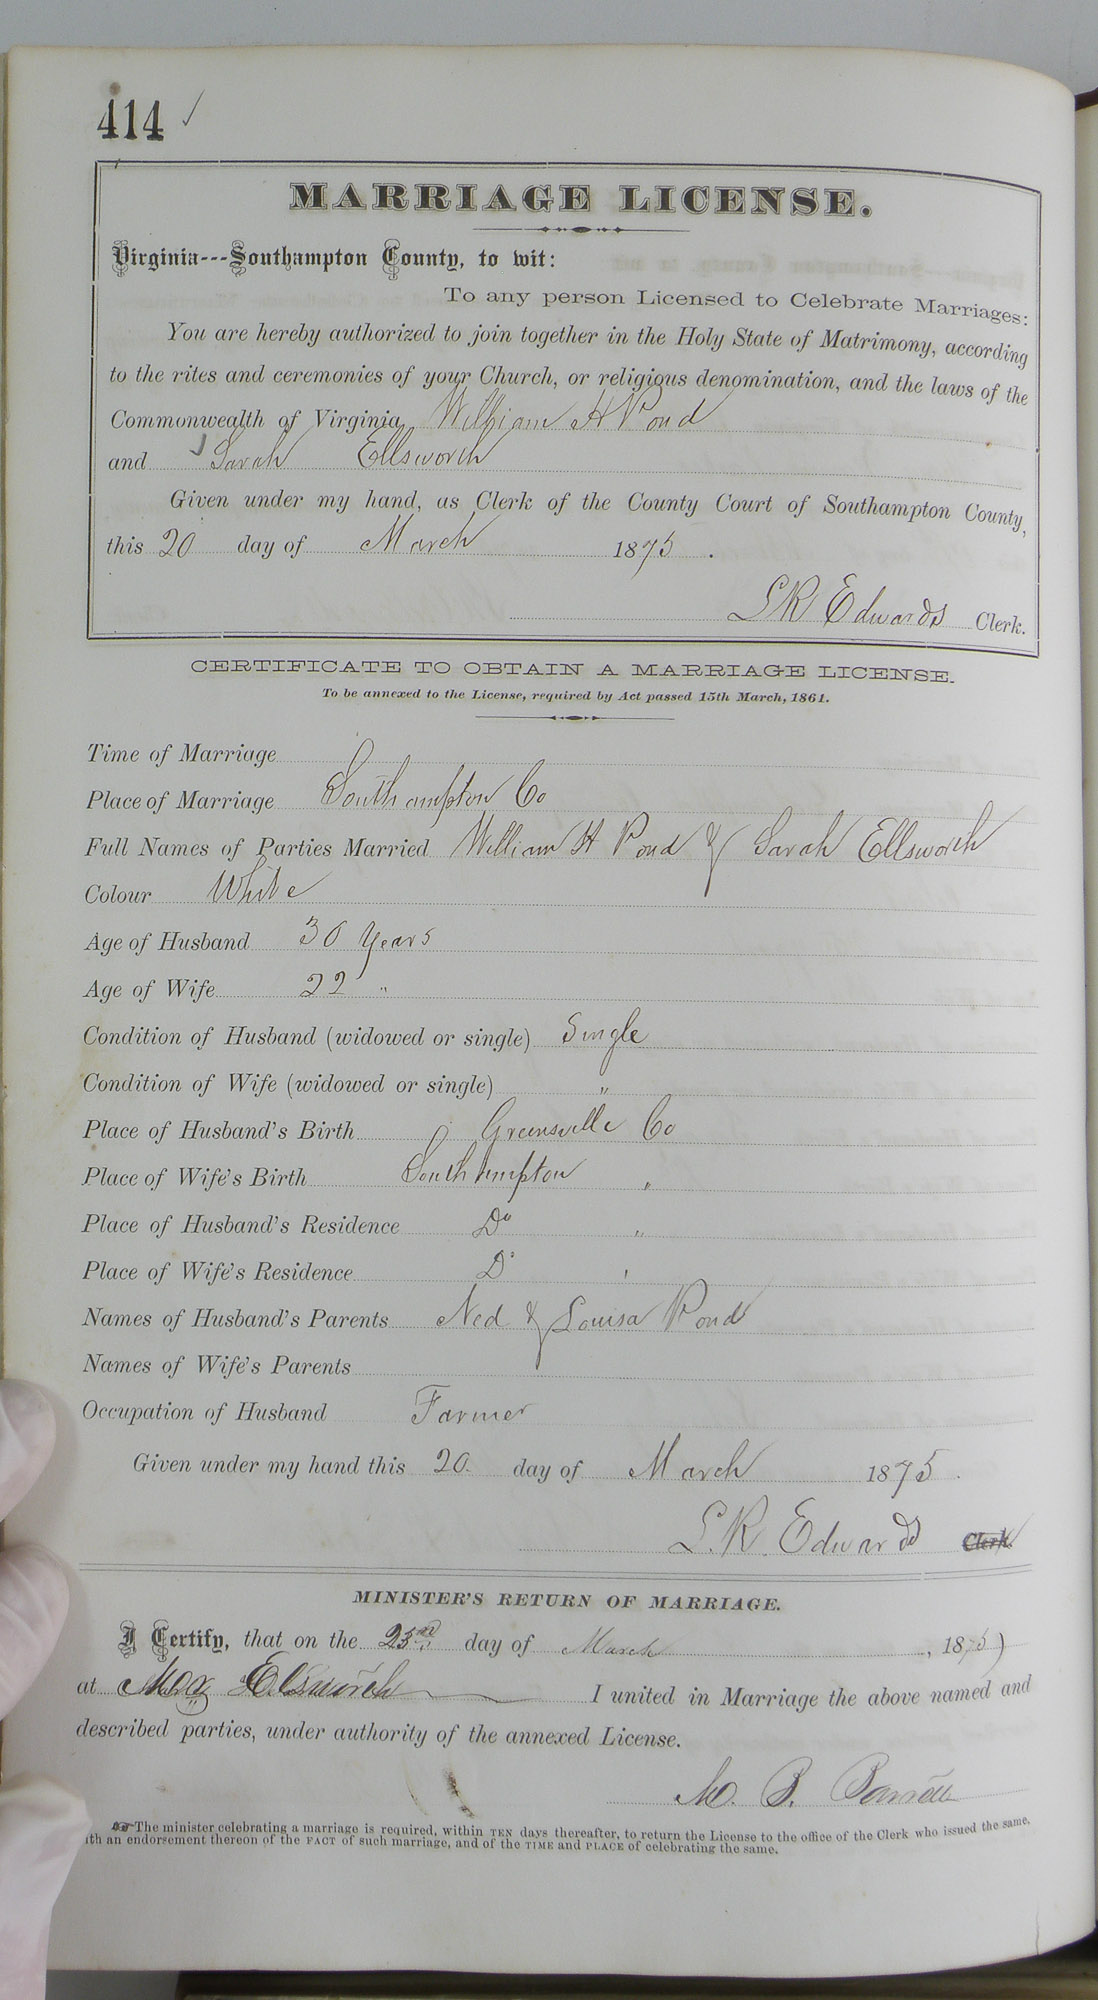 414 ✓
MARRIAGE LICENSE.
Virginia---Southampton County, to wit:
To any person Licensed to Celebrate Marriages:
You are hereby authorized to join together in the Holy State of Matrimony, according
to the rites and ceremonies of your Church, or religious denomination, and the laws of the
Commonwealth of Virginia, William H Pond
and Sarah Ellsworth
Given under my hand, as Clerk of the County Court of Southampton County,
this 20 day of March 1875.
L R Edwards Clerk.
CERTIFICATE TO OBTAIN A MARRIAGE LICENSE.
To be annexed to the License, required by Act passed 15th March, 1861.
Time of Marriage
Place of Marriage Southampton Co
Full Names of Parties Married William H Pond & Sarah Ellsworth
Colour White
Age of Husband 30 Years
Age of Wife 22 "
Condition of Husband (widowed or single) Single
Condition of Wife (widowed or single) "
Place of Husband's Birth Greensville Co
Place of Wife's Birth Southampton "
Place of Husband's Residence Do "
Place of Wife's Residence Do "
Names of Husband's Parents Ned & Louisa Pond
Names of Wife's Parents
Occupation of Husband Farmer
Given under my hand this 20 day of March 1875.
L. R. Edwards Clerk.
MINISTER'S RETURN OF MARRIAGE.
I Certify, that on the day of March, 1875)
at I united in Marriage the above named and
described parties, under authority of the annexed License.
B.
The minister celebrating a marriage is required, within TEN days thereafter, to return the License to the office of the Clerk who issued the same,
with an endorsement thereon of the FACT of such marriage, and of the TIME and PLACE of celebrating the same.